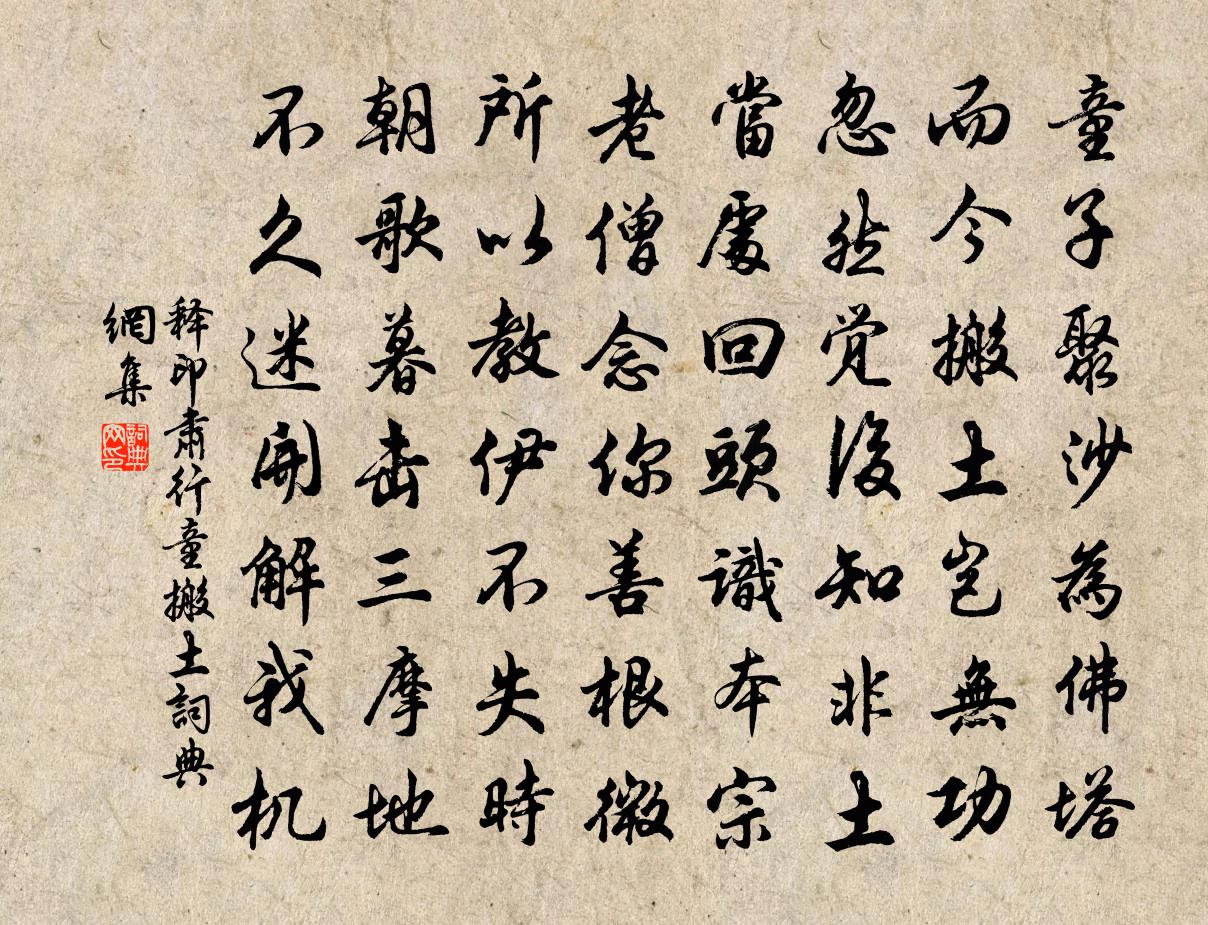 童子聚沙為佛塔
而今搬土豈無功
忽然覺後知非土
當處回頭識本宗
老僧念你善根微
所以教伊不失時
朝歌暮击三摩地
不久迷開解我机
释印肃行童搬土詞典
網集
詞典
网印